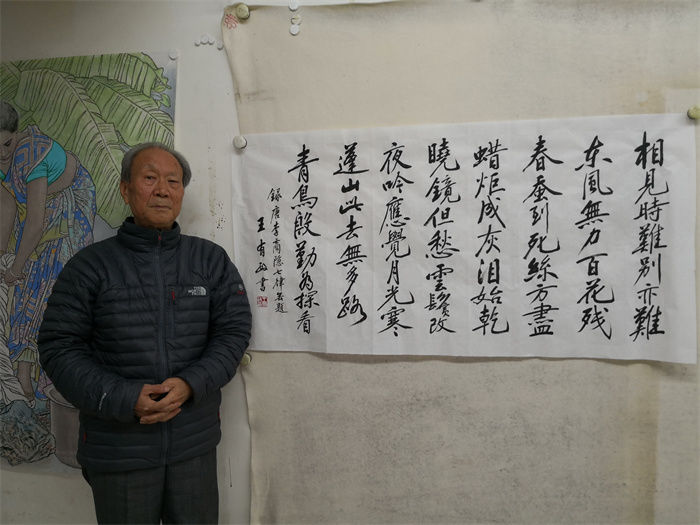 相見時難别亦難
东風無力百花残
春蚕到死絲方盡
蜡炬成灰泪始乾
曉鏡但愁雲鬓改
夜吟應覺月光寒
蓬山此去無多路
青鳥殷勤为探看
録唐李商隐七律無題
王 書
THE NORTH FACE